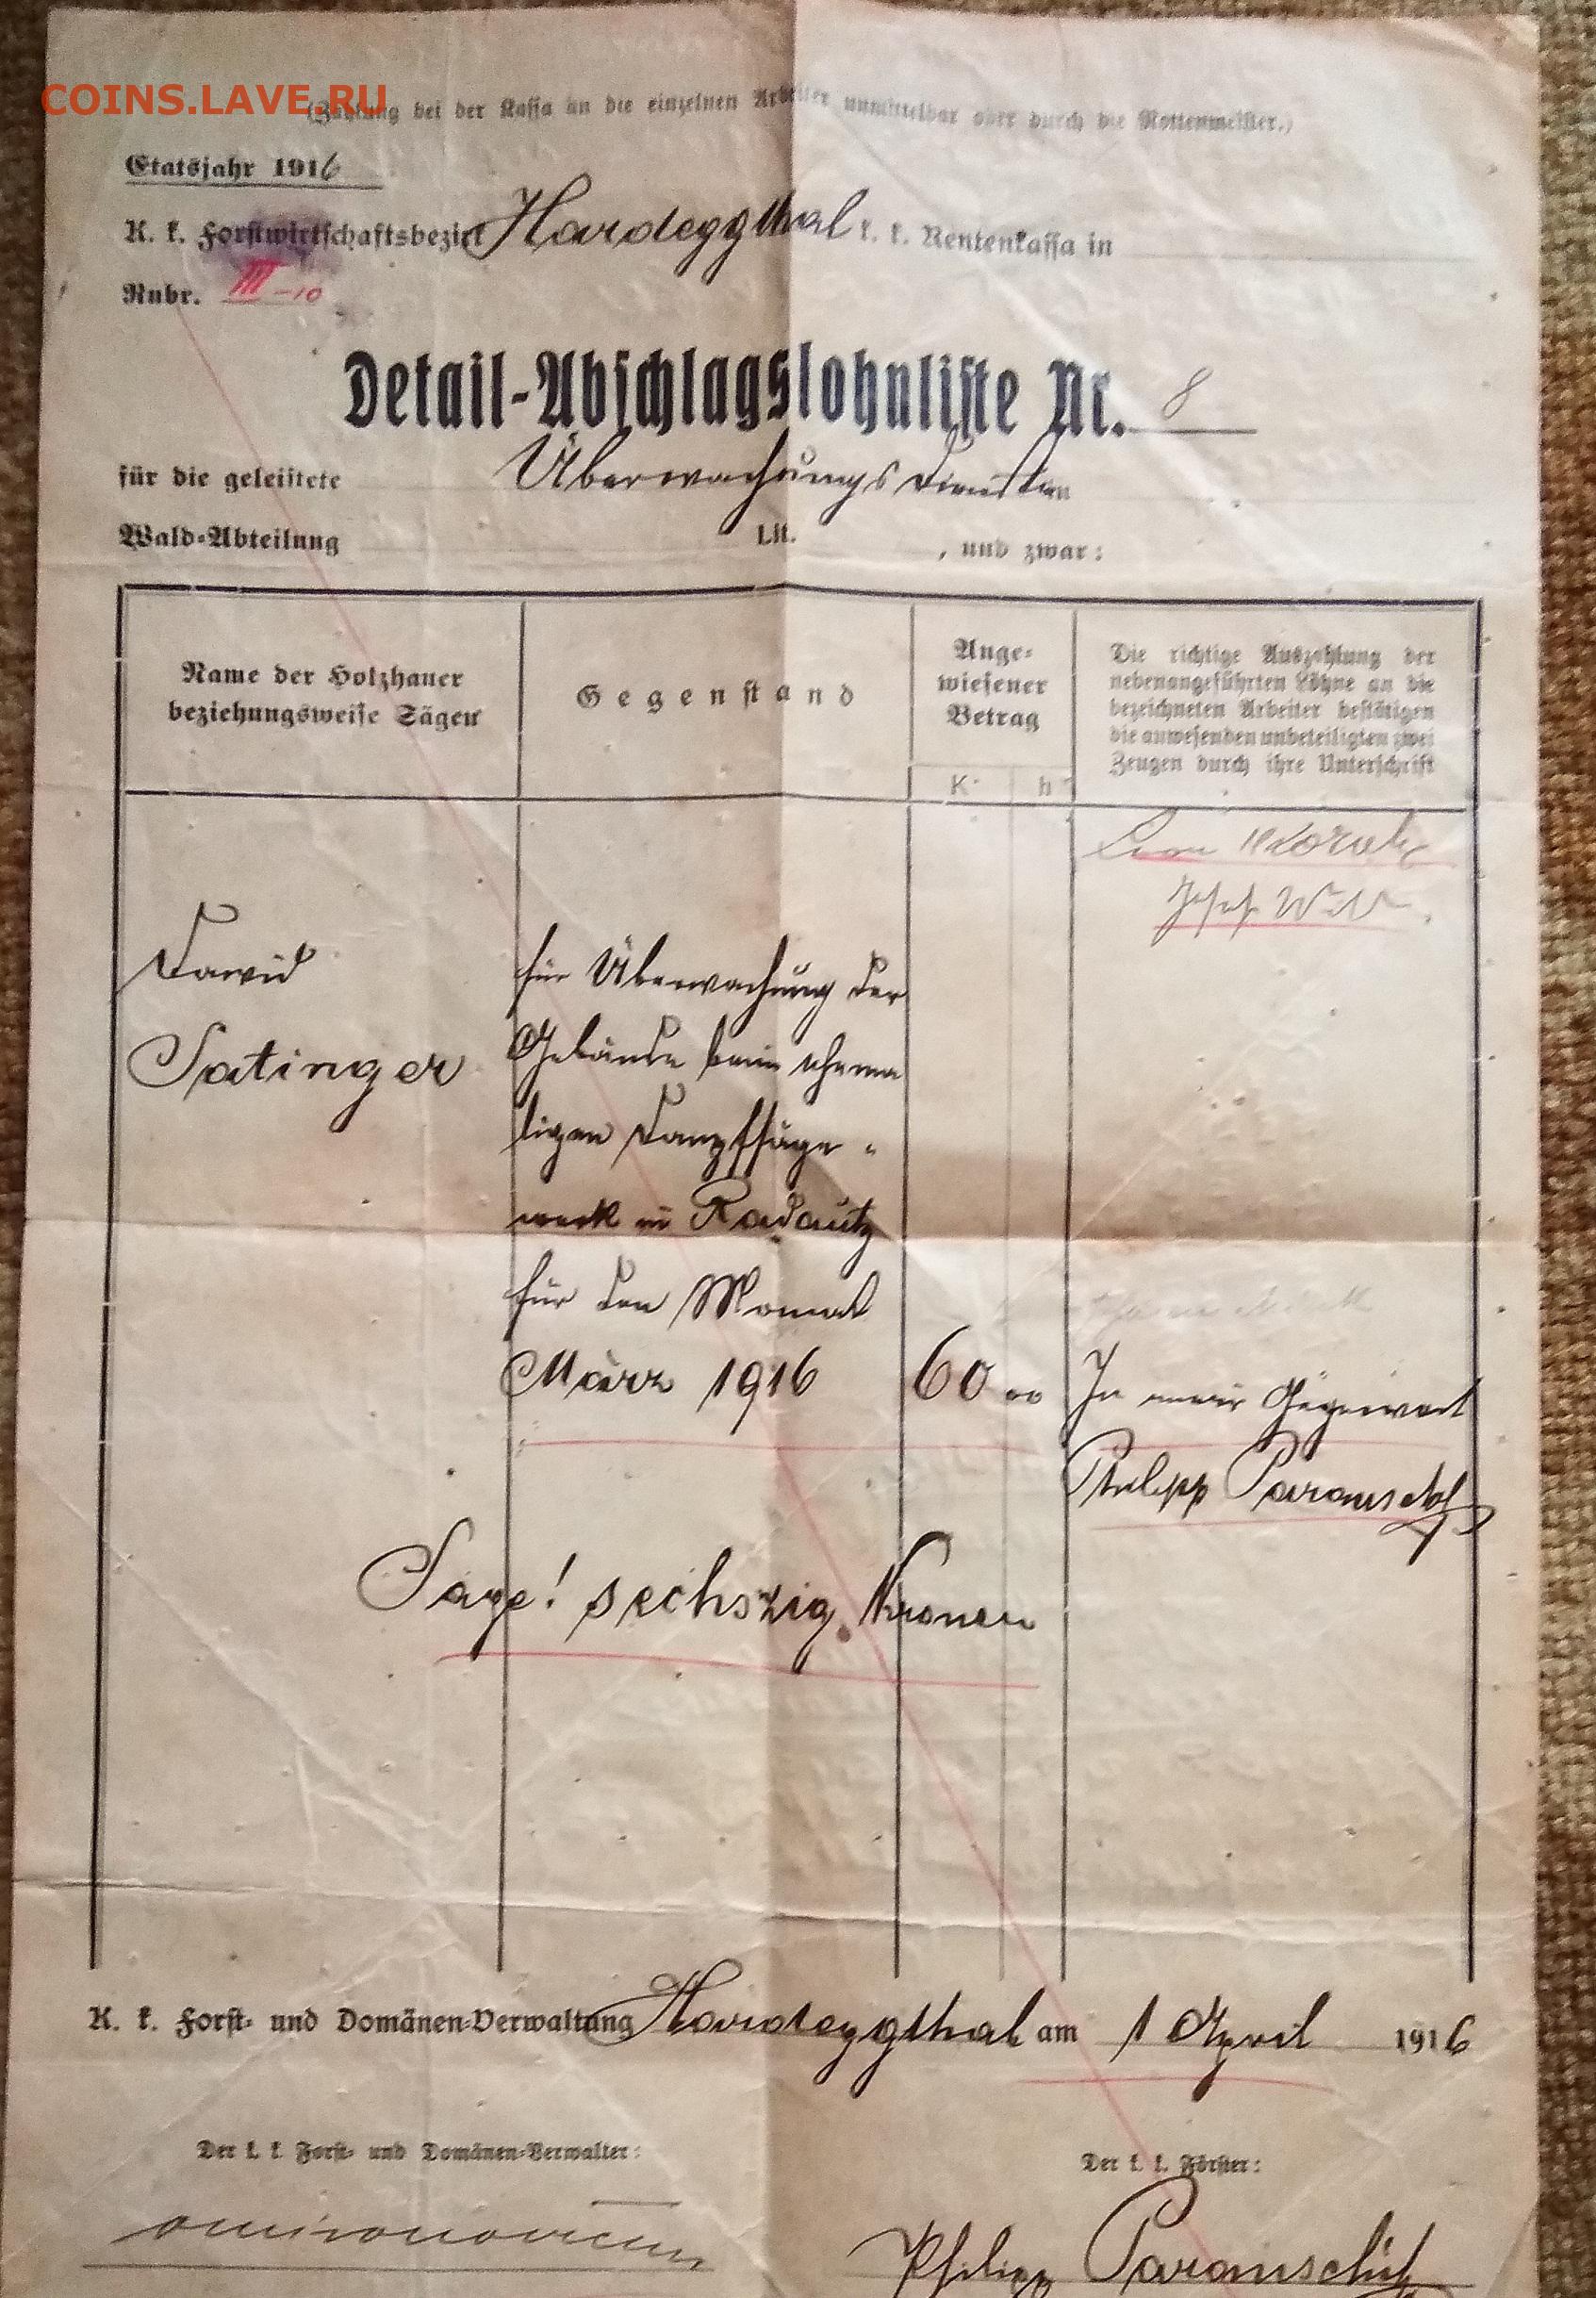 COINS.LAVE.RU
(Zahlung bei der Kassa an die einzelnen Arbeiter unmittelbar oder durch die Rottenmeister.)
Etatsjahr 1916
K. k. Forstwirtschaftsbezirk Hardeggthal k. k. Rentenkassa in
Rubr. III-10
Detail-Abschlagslohnliste Nr. 8
für die geleistete Überwachungsdiensten
Wald-Abteilung Lit. , und zwar:
Name der Holzhauer
beziehungsweise Säger
Gegenstand
Ange-
wiesener
Betrag
K h
Die richtige Auszahlung der
nebenangeführten Löhne an die
bezeichneten Arbeiter bestätigen
die anwesenden unbeteiligten zwei
Zeugen durch ihre Unterschrift
Josef
Dawid
Satinger
für Überwachung der
Gebäude beim ehema
ligen Dampfsäge-
werk in Radautz
für den Monat
März 1916 60 00
In meiner Gegenwart
Philipp Paranschtz
Sage! sechszig Kronen
K. k. Forst- und Domänen-Verwaltung Hardeggthal am 1 April 1916
Der k. k. Forst- und Domänen-Verwalter:
Der k. k. Förster:
Philipp Paranschütz